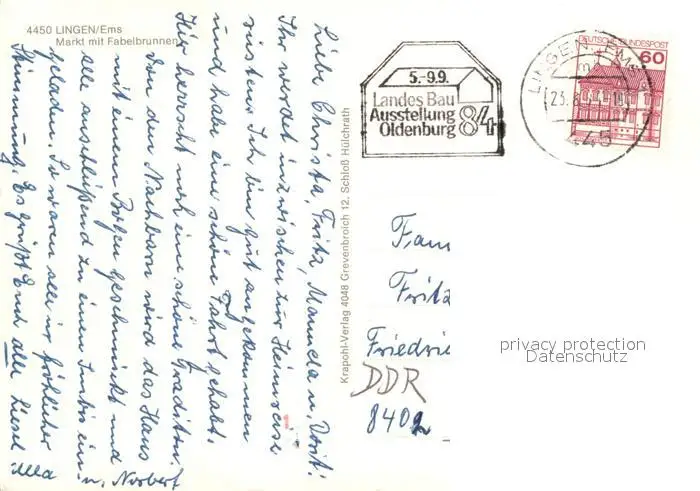 4450 LINGEN/Ems
Markt mit Fabelbrunnen
Liebe Christa, Fritz, Manuela u. Dorit!
Ihr werdet inzwischen zur Heimreise
rüsten. Ich bin gut angekommen
und habe eine schöne Fahrt gehabt.
Hier herrscht noch eine schöne Tradition.
Von den Nachbarn wird das Haus
mit einem Bogen geschmückt und
alle anschließend zu einem Imbiss ein-
geladen. So waren alle in fröhlicher
Stimmung. Es grüßt Euch alle Liesel
u. Norbert
Ulla
Krapohl-Verlag 4048 Grevenbroich 12, Schloß Hülchrath
5.-9.9.
Landes Bau
Ausstellung
Oldenburg 84
LINGEN, EMS
445
DEUTSCHE BUNDESPOST
60
Fam
Fritz
Friedrie
DDR
8402
privacy protection
Datenschutz